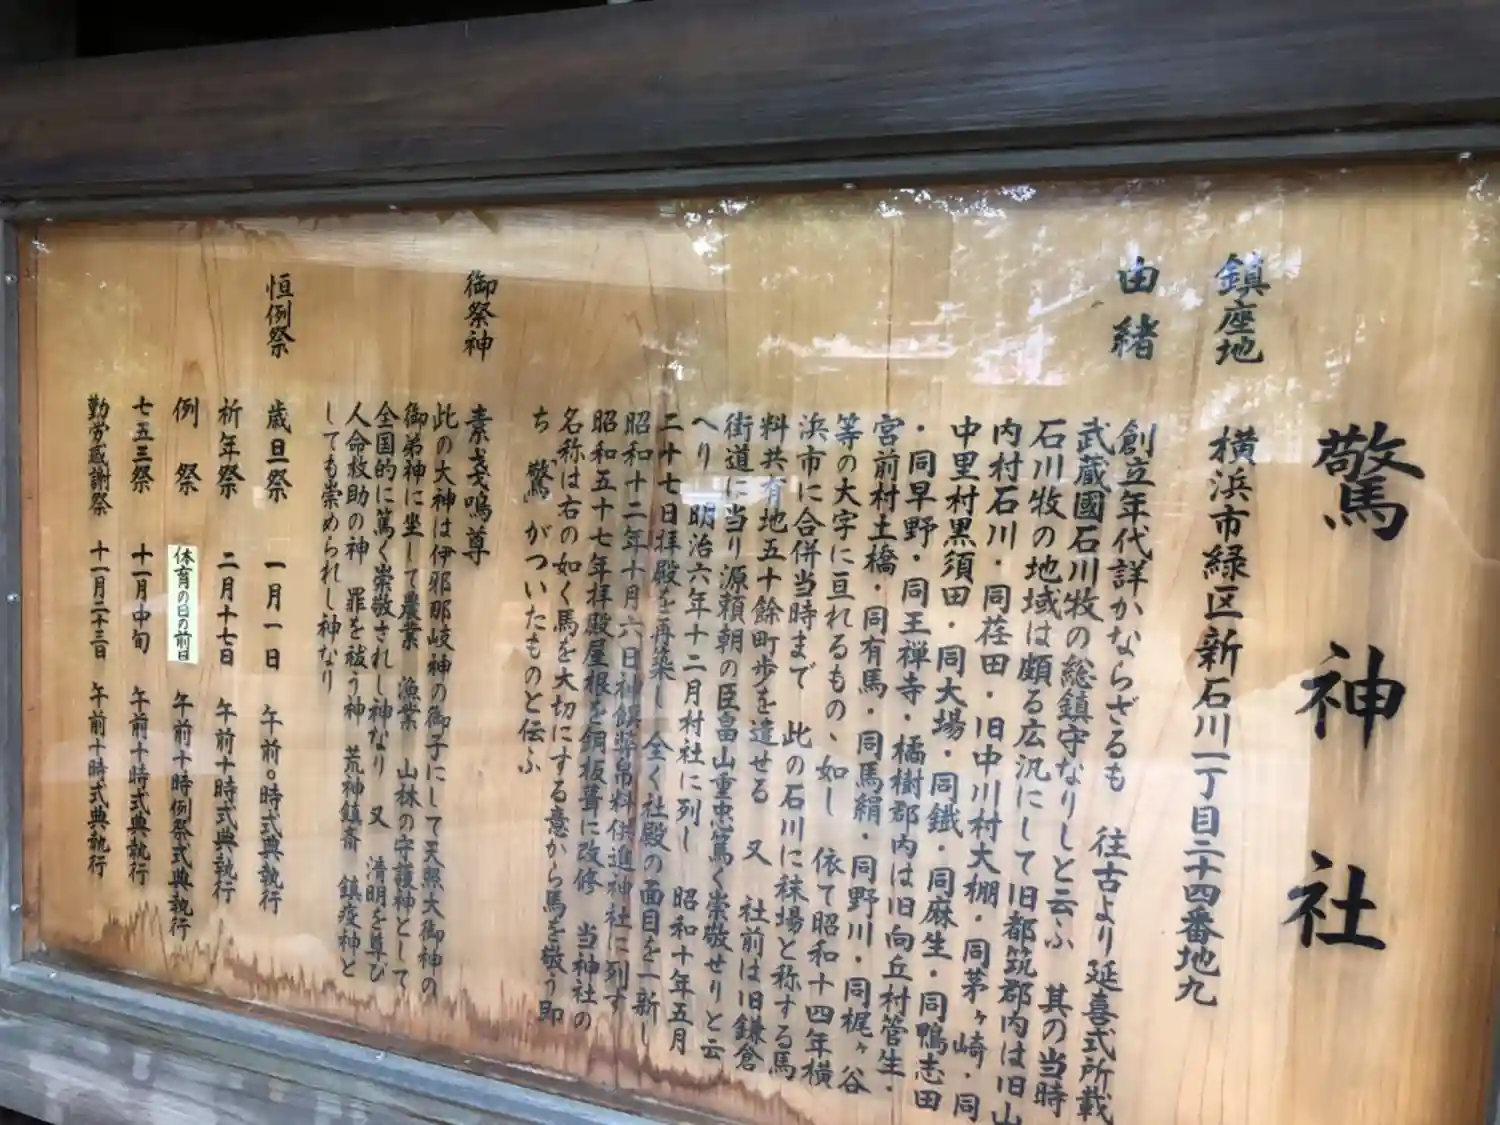 驚神社
鎮座地 横浜市緑区新石川一丁目二十四番地九
由緒 創立年代詳かならざるも 往古より延喜式所載
武蔵國石川牧の総鎮守なりしと云ふ 其の当時
石川牧の地域は頗る広汎にして旧都筑郡内は旧山
内村石川・同荏田・旧中川村大棚・同茅ヶ崎・同
中里村黒須田・同大場・同鐵・同麻生・同鴨志田
・同早野・同王禅寺・橘樹郡内は旧向丘村菅生・
宮前村土橋・同有馬・同馬絹・同野川・同梶ヶ谷
等の大字に亘れるもの、如し 依て昭和十四年横
浜市に合併当時まで 此の石川に秣場と称する馬
料共有地五十餘町歩を遺せる 又 社前は旧鎌倉
街道に当り源頼朝の臣畠山重忠篤く崇敬せりと云
へり 明治六年十二月村社に列し 昭和十年五月
二十七日拝殿を再築し 全く社殿の面目を一新し
昭和十二年十月六日神饌幣帛料供進神社に列す
昭和五十七年拝殿屋根を銅板葺に改修 当神社の
名称は右の如く馬を大切にする意から馬を敬う即
ち 驚 がついたものと伝ふ
御祭神 素戔嗚尊
此の大神は伊邪那岐神の御子にして天照大御神の
御弟神に坐して農業 漁業 山林の守護神として
全国的に篤く崇敬されし神なり 又 清明を尊び
人命救助の神 罪を祓う神 荒神鎮斎 鎮疫神と
しても崇められし神なり
恒例祭 歳旦祭 一月一日 午前〇時式典執行
祈年祭 二月十七日 午前十時式典執行
例祭 体育の日の前日 午前十時例祭式典執行
七五三祭 十一月中旬 午前十時式典執行
勤労感謝祭 十一月二十三日 午前十時式典執行